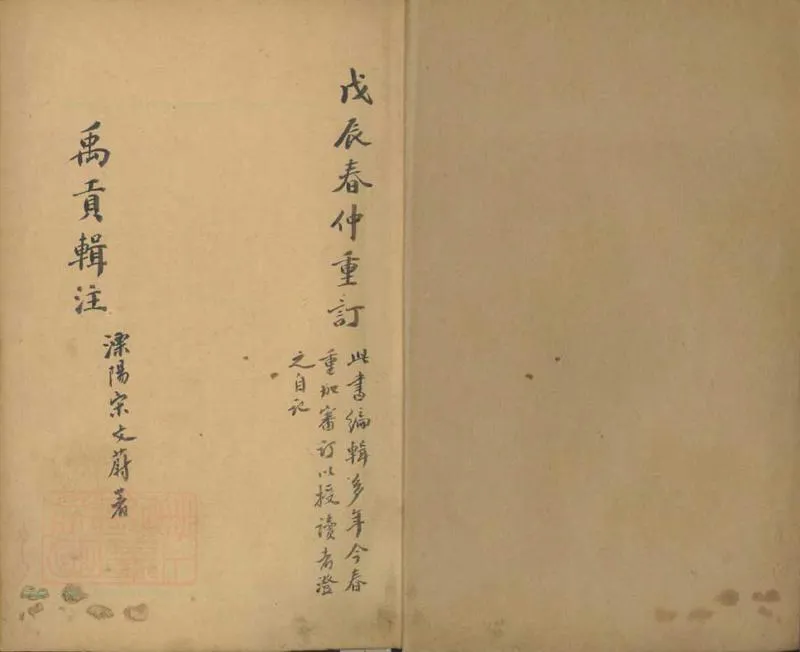 戊辰春仲重訂
此書編輯多年今春
重加審訂以授讀者澄
之自記
禹貢輯注
溧陽宋文蔚著